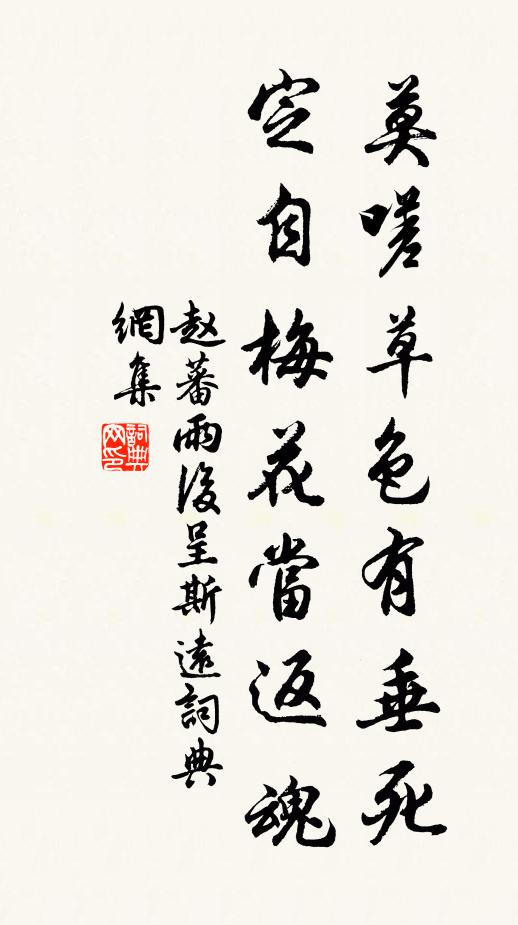 莫嗟草色有垂死
定自梅花當返魂
赵蕃雨後呈斯遠詞典
網集
詞典
网印